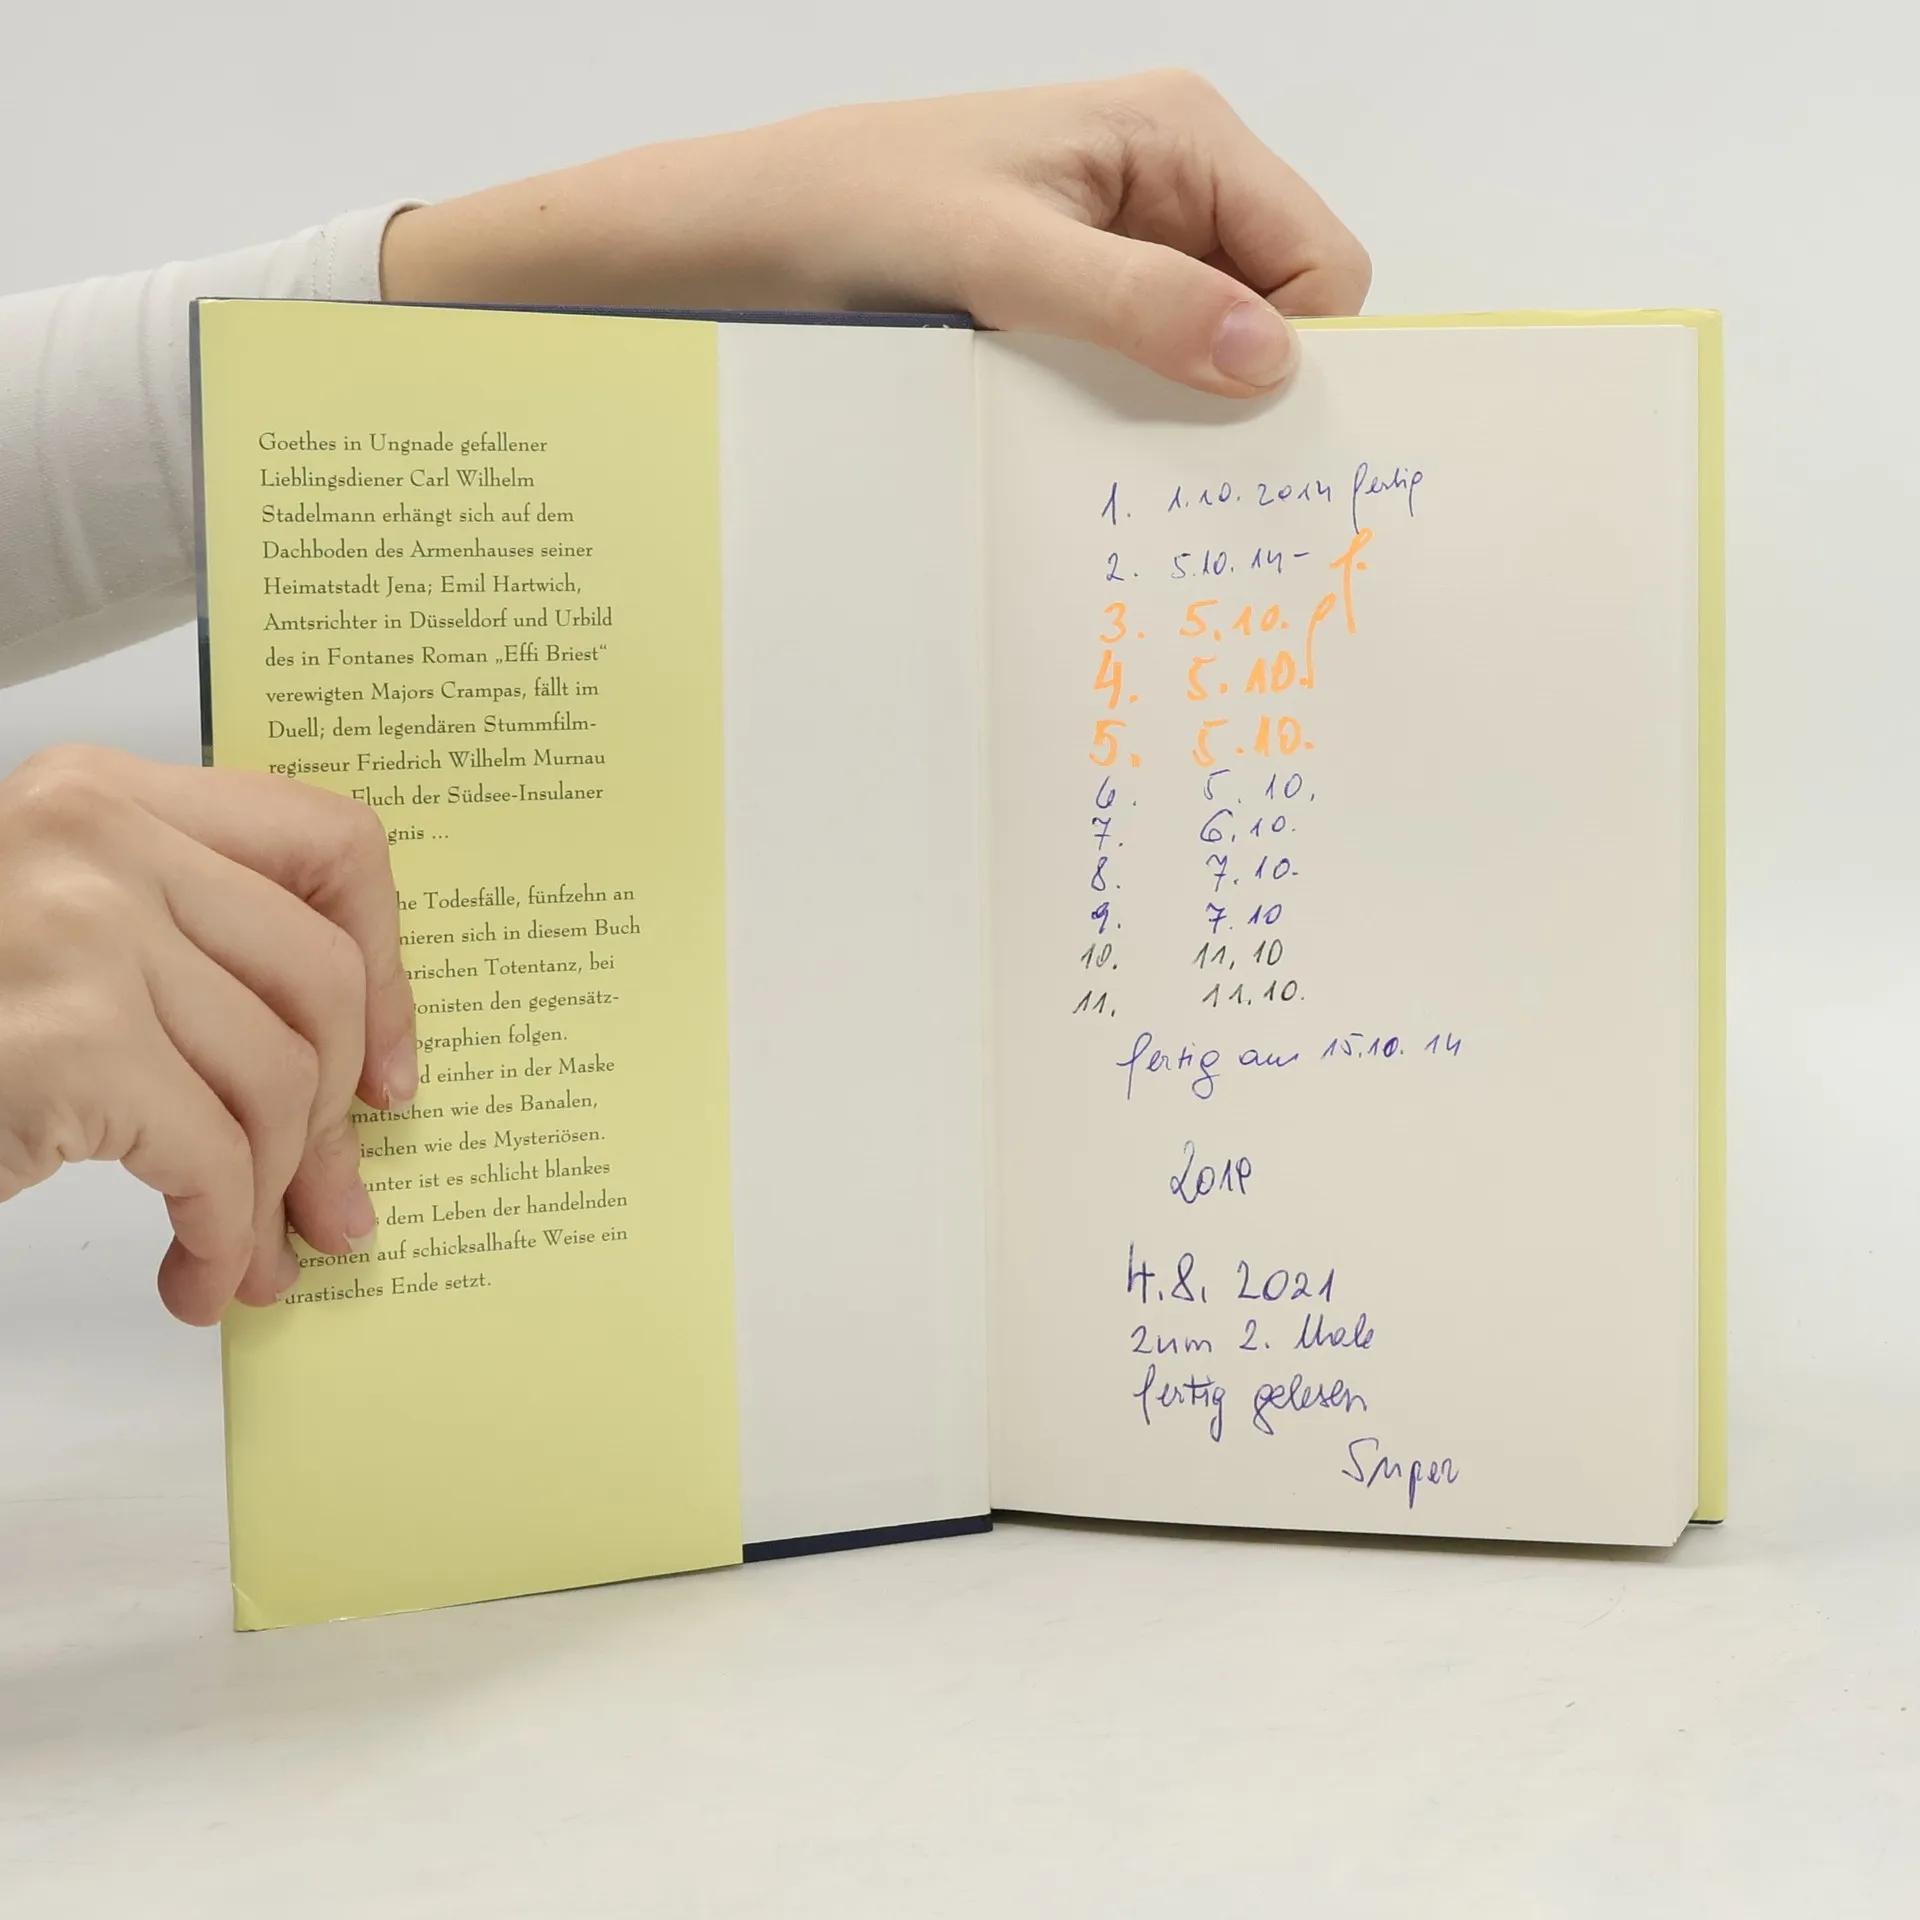 Goethes in Ungnade gefallener
Lieblingsdiener Carl Wilhelm
Stadelmann erhängt sich auf dem
Dachboden des Armenhauses seiner
Heimatstadt Jena; Emil Hartwich,
Amtsrichter in Düsseldorf und Urbild
des in Fontanes Roman „Effi Briest“
verewigten Majors Crampas, fällt im
Duell; dem legendären Stummfilm-
regisseur Friedrich Wilhelm Murnau
Fluch der Südsee-Insulaner
gnis ...
he Todesfälle, fünfzehn an
nieren sich in diesem Buch
arischen Totentanz, bei
onisten den gegensätz-
ographien folgen.
d einher in der Maske
matischen wie des Banalen,
ischen wie des Mysteriösen.
unter ist es schlicht blankes
s dem Leben der handelnden
ersonen auf schicksalhafte Weise ein
drastisches Ende setzt.
1. 1.10.2014 fertig
2. 5.10.14- f.
3. 5.10. f
4. 5.10.
5. 5.10.
6. 5.10.
7. 6.10.
8. 7.10.
9. 7.10
10. 11.10
11. 11.10.
fertig am 15.10.14
4.8.2021
zum 2. Male
fertig gelesen
Super